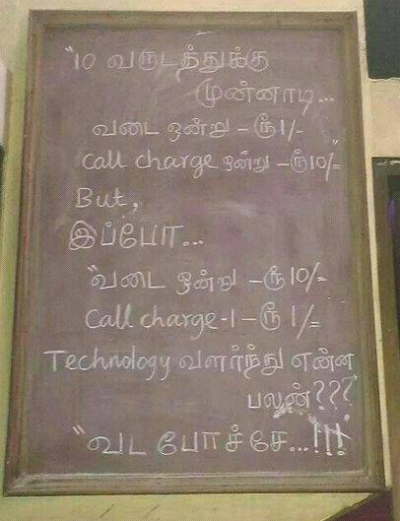 "10 வருடத்துக்கு
முன்னாடி...
வடை ஒன்று - ரூ 1/-
call charge ஒன்று - ரூ 10/="
But,
இப்போ...
"வடை ஒன்று - ரூ 10/=
call charge -1 - ரூ 1/=
Technology வளர்ந்து என்ன
பலன்???
"வட போச்சே...!!!